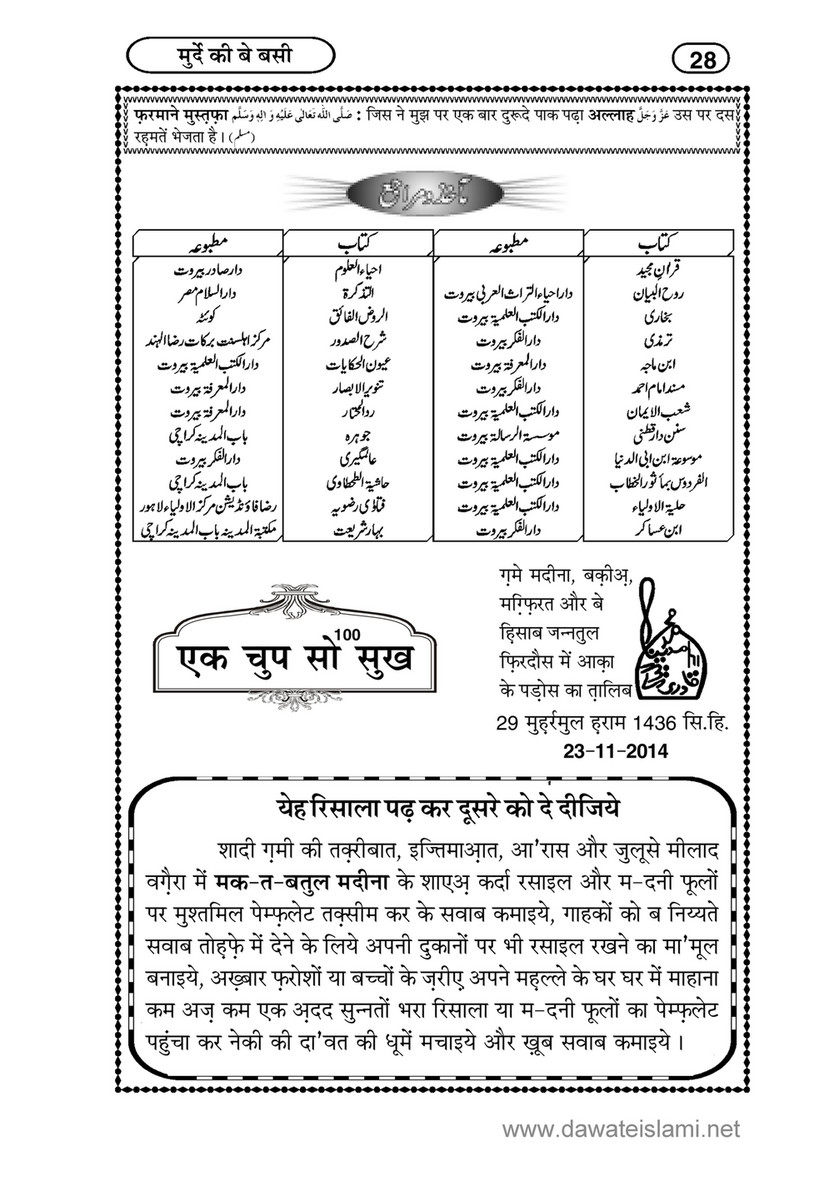 मुर्दे की बे बसी
28
फ़रमाने मुस्तफ़ा صَلَّى اللّٰهُ تَعَالٰى عَلَيْهِ وَاٰلِهٖ وَسَلَّم : जिस ने मुझ पर एक बार दुरूदे पाक पढ़ा अल्लाह عَزَّوَجَلَّ उस पर दस
रह़मतें भेजता है। (مسلم)
مآخذ و مراجع
کتاب مطبوعہ کتاب مطبوعہ
قرانِ مجید احیاء العلوم دار صادر بیروت
روح البیان دار احیاء التراث العربی بیروت التذکرة دار السلام مصر
بخاری دار الکتب العلمیة بیروت الروض الفائق کوئٹہ
ترمذی دار الفکر بیروت شرح الصدور مرکز اہلسنت برکات رضا الہند
ابن ماجہ دار المعرفة بیروت عیون الحکایات دار الکتب العلمیة بیروت
مسند امام احمد دار الفکر بیروت تنویر الابصار دار المعرفة بیروت
شعب الایمان دار الکتب العلمیة بیروت رد المحتار دار المعرفة بیروت
سنن دارقطنی موسسة الرسالة بیروت جوہرہ باب المدینہ کراچی
موسوعة ابن ابی الدنیا دار الکتب العلمیة بیروت عالمگیری دار الفکر بیروت
الفردوس بمأثور الخطاب دار الکتب العلمیة بیروت حاشیة الطحطاوی باب المدینہ کراچی
حلیة الاولیاء دار الکتب العلمیة بیروت فتاوٰی رضویہ رضا فاؤنڈیشن مرکز الاولیاء لاہور
ابن عساکر دار الفکر بیروت بہار شریعت مکتبة المدینہ باب المدینہ کراچی
एक चुप सो 100 सुख
ग़मे मदीना, बक़ीअ़,
मग़्फ़िरत और बे
ह़िसाब जन्नतुल
फ़िरदौस में आक़ा
के पड़ोस का त़ालिब
29 मुह़र्रमुल ह़राम 1436 सि.हि.
23-11-2014
येह रिसाला पढ़ कर दूसरे को दे दीजिये
शादी ग़मी की तक़्रीबात, इज्तिमाआ़त, आ'रास और जुलूसे मीलाद
वग़ैरा में मक-त-बतुल मदीना के शाएअ़ कर्दा रसाइल और म-दनी फूलों
पर मुश्तमिल पेम्फ़लेट तक़्सीम कर के सवाब कमाइये, गाहकों को ब निय्यते
सवाब तोह़फ़े में देने के लिये अपनी दुकानों पर भी रसाइल रखने का मा'मूल
बनाइये, अख़्बार फ़रोशों या बच्चों के ज़रीए अपने महल्ले के घर घर में माहाना
कम अज़ कम एक अ़दद सुन्नतों भरा रिसाला या म-दनी फूलों का पेम्फ़लेट
पहुंचा कर नेकी की दा'वत की धूमें मचाइये और ख़ूब सवाब कमाइये ।
www.dawateislami.net